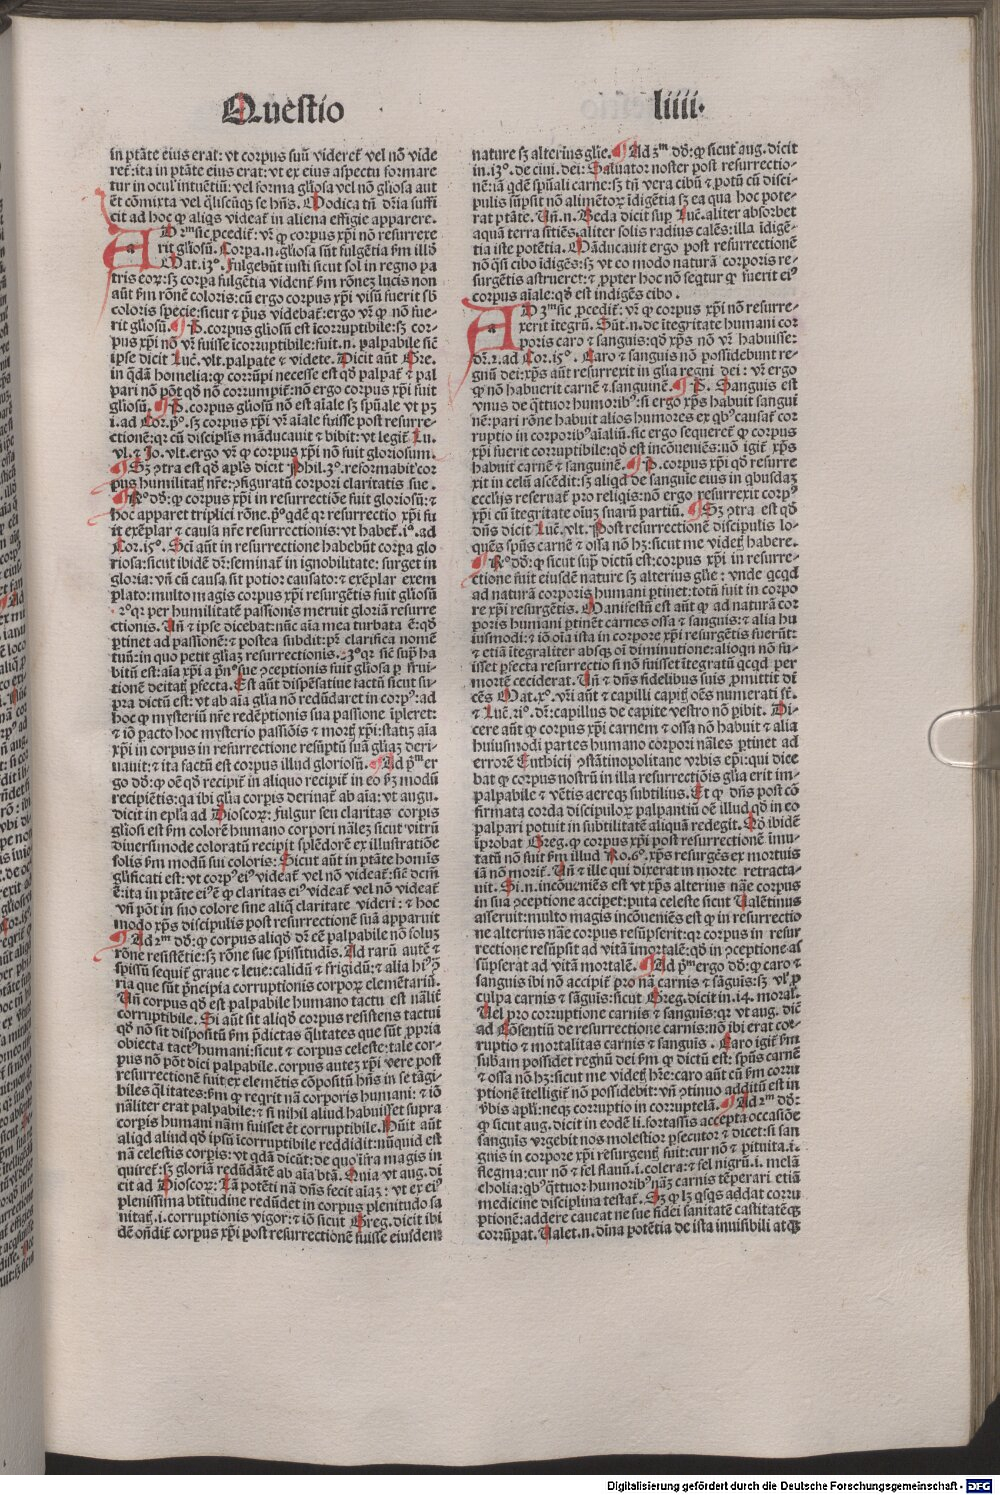 Questio
liiii.
in ptāte eius erat: vt corpus suū videret᷑ vel nō vide
ret᷑: ita in ptāte eius erat: vt ex eius aspectu formare
tur in oculꝭ intuētiū: vel forma gl̄iosa vel nō gl̄iosa aut
ēt cōmixta vel q̄liscūqꝫ se hn̄s. Modica tn̄ dr̄ia suffi
cit ad hoc ꝙ aliqs videat᷑ in aliena effigie apparere.
AD pͫ sic ꝓcedit᷑: vr̄ ꝙ corpus xp̄i nō resurrexe
rit gl̄iosū. Corpa.n.gl̄iosa sūt fulgētia ẜm illđ
Mat.13º. fulgebūt iusti sicut sol in regno pa
tris eoꝝ: sꝫ corpa fulgētia vident᷑ ẜm rōneꝫ lucis non
aūt ẜm rōnē coloris: cū ergo corpus xp̄i visū fuerit sb̄
coloris specie: sicut ⁊ pͥus videbat᷑: ergo vr̄ ꝙ nō fue-
rit gl̄iosū. ¶ P. corpus gl̄iosū est īcorruptibile: sꝫ cor-
pus xp̄i nō vr̄ fuisse īcorruptibile: fuit.n. palpabile sic̄
ipse dicit Luc̄. vlt. palpate ⁊ videte. Dicit aūt Gre.
in q̄dā homelia: ꝙ corrūpi necesse est qđ palpat᷑ ⁊ pal
pari nō pōt qđ nō corrumpit᷑: nō ergo corpus xp̄i fuit
gl̄iosū. ¶ P. corpus gl̄iosū nō est aīale sꝫ spūale vt pꝫ
i. ad Cor. pͦ. sꝫ corpus xp̄i vr̄ aīale fuisse post resurre-
ctionē: qꝛ cū discipl̄is māducauit ⁊ bibit: vt legit᷑ Lu.
vl. ⁊ Jo. vlt. ergo vr̄ ꝙ corpus xp̄i nō fuit gloriosum.
¶ Sꝫ ꝯtra est qđ apl̄s dicit Phil.3º. reformabit cor
pus humilitatꝭ nr̄e: ꝯfiguratū corpori claritatis sue.
¶ Rº dđ: ꝙ corpus xp̄i in resurrectiōe fuit gloriosū: ⁊
hoc apparet triplici rōne. pͦ qdē qꝛ resurrectio xp̄i fu
it exēplar ⁊ causa nr̄e resurrectionis: vt habet᷑.iº. ad
Cor.15º. Scī aūt in resurrectione habebūt corpa glo
riosa: sicut ibidē dr̄: seminat᷑ in ignobilitate: surget in
gloria: vn̄ cū causa sit potior causato: ⁊ exēplar exem
plato: multo magis corpus xp̄i resurgētis fuit gl̄iosū
2º qꝛ per humilitatē passionis meruit gloriā resurre
ctionis. Vn̄ ⁊ ipse dicebat: nūc aīa mea turbata ē: qđ
ꝑtinet ad passionē: ⁊ postea subdit: pr̄ clarifica nomē
tuū: in quo petit gl̄iaꝫ resurrectionis. 3º qꝛ sic̄ supͣ ha
bitū est: aīa xp̄i a pn̄º sue ꝯceptionis fuit gl̄iosa ꝑ frui-
tionē deitatꝭ ꝑfecta. Est aūt dispēsatiue factū sicut su-
pra dictū est: vt ab aīa gl̄ia nō redūdaret in corpꝰ: ad
hoc ꝙ mysteriū nr̄e redēptionis sua passione īpleret:
⁊ iō ꝑacto hoc mysterio passiōis ⁊ mortꝭ xp̄i: statiꝫ aīa
xp̄i in corpus in resurrectione resūptū suā gl̄iaꝫ deri-
uauit: ⁊ ita factū est corpus illud gloriosū. ¶ Ad pͫ er
go dđ: ꝙ oē qđ recipit᷑ in aliquo recipit᷑ in eo ẜꝫ modū
recipiētis: qa ibi gl̄ia corpis deriuat᷑ ab aīa: vt augu.
dicit in epl̄a ad Dioscoꝝ: fulgur seu claritas corpis
gl̄iosi est ẜm colorē humano corpori nāleꝫ sicut vitrū
diuersimode coloratū recipit splēdorē ex illustratiōe
solis ẜm modū sui coloris: Sicut aūt in ptāte homīs
gl̄ificati est: vt corpꝰ eiꝰ videat᷑ vel nō videat᷑: sic̄ dem̄
ē: ita in ptāte eiꝰ ē ꝙ claritas eiꝰ videat᷑ vel nō videat᷑
vn̄ pōt in suo colore sine aliq̄ claritate videri: ⁊ hoc
modo xp̄s discipulis post resurrectionē suā apparuit
¶ Ad 2ͫ dđ: ꝙ corpus aliqđ dr̄ cē palpabile nō soluꝫ
rōne resistētie: sꝫ rōne sue spissitudis. Ad rarū autē ⁊
spissū sequit᷑ graue ⁊ leue: calidū ⁊ frigidū: ⁊ alia hiꝰ ꝯ
ria que sūt pͥncipia corruptionis corpoꝝ elemētariū.
Vn̄ corpus qđ est palpabile humano tactu est nālit᷑
corruptibile. Si aūt sit aliqđ corpus resistens tactui
qđ nō sit dispositū ẜm pͥdictas q̄litates que sūt ꝓpria
obiecta tactꝰ humani: sicut ⁊ corpus celeste: tale cor-
pus nō pōt dici palpabile. corpus auteꝫ xp̄i vere post
resurrectionē fuit ex elemētis cōpositū hn̄s in se tāgi-
biles q̄litates: ẜm ꝙ reqrit nā corporis humani: ⁊ iō
nāliter erat palpabile: ⁊ si nihil aliud habuisset supra
corpis humani nām fuisset ēt corruptibile. Huit aūt
aliqd aliud qđ ipsū īcorruptibile reddidit: nūquid est
nā celestis corpis: vt qdā dicūt: de quo īfra magis in
quiret᷑: sꝫ gloriā redūdātē ab aīa btā. Quia vt aug. di
cit ad Dioscoꝝ: Tā potēti nā dn̄s fecit aīaꝫ: vt ex eiꝰ
plenissima btītudine redūdet in corpus plenitudo sa
nitatꝭ.i. corruptionis vigor: ⁊ iō sicut Greg. dicit ibi
dē on̄dit᷑ corpus xp̄i post resurrectionē fuisse eiusdem
nature sꝫ alterius gl̄ie. ¶ Ad 3ͫ dđ: ꝙ sicut aug. dicit
in.13º. de ciui. dei: Saluator noster post resurrectio-
nē: iā qdē spūali carne: sꝫ tn̄ vera cibū ⁊ potū cū disci-
pulis sūpsit nō alimētoꝝ īdigētia sꝫ ea qua hoc pote-
rat ptāte. Vn̄.n. Beda dicit sup Luc̄. aliter absorbet
aquā terra sitiēs. aliter solis radius calēs: illa īdigē-
tia iste potētia. Māducauit ergo post resurrectionē
nō q̄si cibo īdigēs: sꝫ vt eo modo naturā corporis re-
surgētis astrueret: ⁊ ꝓpter hoc nō seqtur ꝙ fuerit eiꝰ
corpus aīale: qđ est indigēs cibo.
AD 3ͫ sic ꝓcedit᷑: vr̄ ꝙ corpus xp̄i nō resurre-
xerit ītegrū. Sūt.n. de ītegritate humani cor
poris caro ⁊ sanguis: qđ xp̄s nō vr̄ habuisse:
dr̄.2. ad Cor.15º. Caro ⁊ sanguis nō possidebunt re-
gnū dei: xp̄s aūt resurrexit in gl̄ia regni dei: vr̄ ergo
ꝙ nō habuerit carnē ⁊ sanguinē. ¶ P. Sanguis est
vnus de q̄ttuor humoribꝰ: si ergo xp̄s habuit sangui
nē: pari rōne habuit alios humores ex qbꝰ causat᷑ cor
ruptio in corporibꝰ aīaliū. sic ergo sequeret᷑ ꝙ corpus
xp̄i fuerit corruptibile: qđ est incōueniēs: nō igit᷑ xp̄s
habuit carnē ⁊ sanguinē. ¶ P. corpus xp̄i qđ resurre
xit in celū ascēdit: sꝫ aliqd de sanguīe eius in qbusdaꝫ
eccl̄ijs reseruat᷑ pro reliqijs: nō ergo resurrexit corpꝰ
xp̄i cū ītegritate oīuꝫ suarū partiū. ¶ Sꝫ ꝯtra est qđ
dn̄s dicit Luc̄. vlt. Post resurrectionē discipulis lo-
quēs spūs carnē ⁊ ossa nō hꝫ: sicut me videtꝭ habere.
¶ Rº dđ: ꝙ sicut supͣ dictū est: corpus xp̄i in resurre-
ctione fuit eiusdē nature sꝫ alterius gl̄ie: vnde qcqd
ad naturā corporis humani ꝑtinet: totū fuit in corpo
re xp̄i resurgētis. Manifestū est aūt ꝙ ad naturā cor
poris humani ꝑtinēt carnes ossa ⁊ sanguis: ⁊ alia hu
iusmodi: ⁊ iō oīa ista in corpore xp̄i resurgētis fuerūt:
⁊ etiā ītegraliter absqꝫ oī diminutione: alioqn nō fu-
isset ꝑfecta resurrectio si nō fuisset ītegratū qcqd per
mortē ceciderat. Vn̄ ⁊ dn̄s fidelibus suis ꝓmittit di
cēs Mat.xº. vr̄i aūt ⁊ capilli capitꝭ oēs numerati st̄.
⁊ Luc̄.21º. dr̄: capillus de capite vestro nō ꝑibit. Di-
cere aūt ꝙ corpus xp̄i carnem ⁊ ossa nō habuit ⁊ alia
huiusmodi partes humano corpori nāles ꝑtinet ad
errorē Euthicij ꝯstātinopolitane vrbis ep̄i: qui dice
bat ꝙ corpus nostrū in illa resurrectiōis gl̄ia erit im-
palpabile ⁊ vētis aereqꝫ subtilius. Et ꝙ dn̄s post cō
firmata corda discipuloꝝ palpantiū oē illud qđ in eo
palpari potuit in subtilitatē aliquā redegit. Qđ ibidē
īprobat Greg. ꝙ corpus xp̄i post resurrectionē īmu-
tatū nō fuit ẜm illud Ro.6º. xp̄s resurgēs ex mortuis
iā nō morit᷑. Vn̄ ⁊ ille qui dixerat in morte retracta-
uit. Si.n. incōueniēs est vt xp̄s alterius nāe corpus
in sua ꝯceptione acciper: puta celeste sicut Valētinus
asseruit: multo magis incōueniēs est ꝙ in resurrectio
ne alterius nāe corpus resūpserit: qꝛ corpus in resur
rectione resūpsit ad vitā īmortalē: qđ in ꝯceptione as
sūpserat ad vitā mortalē. ¶ Ad pͫ ergo dđ: ꝙ caro ⁊
sanguis ibi nō accipit᷑ pro nā carnis ⁊ sāguīs: sꝫ vl̓ ꝓ
culpa carnis ⁊ sāguīs: sicut Greg. dicit in.14. moral̓.
Vel pro corruptione carnis ⁊ sanguis: qꝛ vt aug. dic̄
ad Cōsentiū de resurrectione carnis: nō ibi erat cor-
ruptio ⁊ mortalitas carnis ⁊ sanguis. Caro igit᷑ ẜm
subām possidet regnū dei ẜm ꝙ dictū est: spūs carnē
⁊ ossa nō hꝫ: sicut me videtꝭ hr̄e: caro aūt cū ẜm corru
ptionē ītelligit᷑ nō possidebit: vn̄ ꝯtinuo additū est in
v̓bis apl̄i: neqꝫ corruptio in corruptelā. ¶ Ad 2ͫ dđ:
ꝙ sicut aug. dicit in eodē li. fortassis accepta occasiōe
sanguīs vrgebit nos molestior ꝑsecutor ⁊ dicet: si san
guis in corpore xp̄i resurgentꝭ fuit: cur nō ⁊ pituita.i.
flegma: cur nō ⁊ fel flauū.i. colera: ⁊ fel nigrū.i. melā
cholia: qbꝰ q̄ttuor humoribꝰ nāꝫ carnis tēperari etiā
medicine disciplina testat᷑. Sꝫ ꝙ lꝫ qsqs addat corru
ptionē: addere caueat ne sue fidei sanitatē castitatēqꝫ
corrūpat. Valet.n. diīna potētia de ista inuisibili atqꝫ
Digitalisierung gefördert durch die Deutsche Forschungsgemeinschaft - DFG